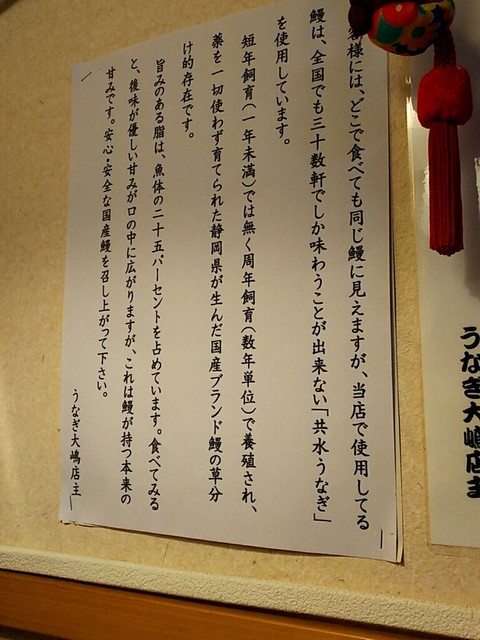 客様には、どこで食べても同じ鰻に見えますが、当店で使用してる
鰻は、全国でも三十数軒でしか味わうことが出来ない「共水うなぎ」
を使用しています。
短年飼育(一年未満)では無く周年飼育(数年単位)で養殖され、
薬を一切使わず育てられた静岡県が生んだ国産ブランド鰻の草分
け的存在です。
旨みのある脂は、魚体の二十五パーセントを占めています。食べてみる
と、後味が優しい甘みが口の中に広がりますが、これは鰻が持つ本来の
甘みです。安心・安全な国産鰻を召し上がって下さい。
うなぎ大嶋店主
うなぎ大嶋店主